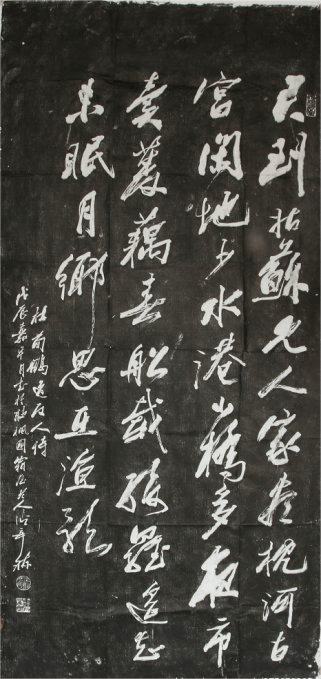 君到姑蘇見人家盡枕河古
宮閑地少水港小橋多夜市
賣菱藕春船載綺羅遥知
未眠月鄉思在漁歌
杜荀鶴送友人詩
戊辰嘉平月書於